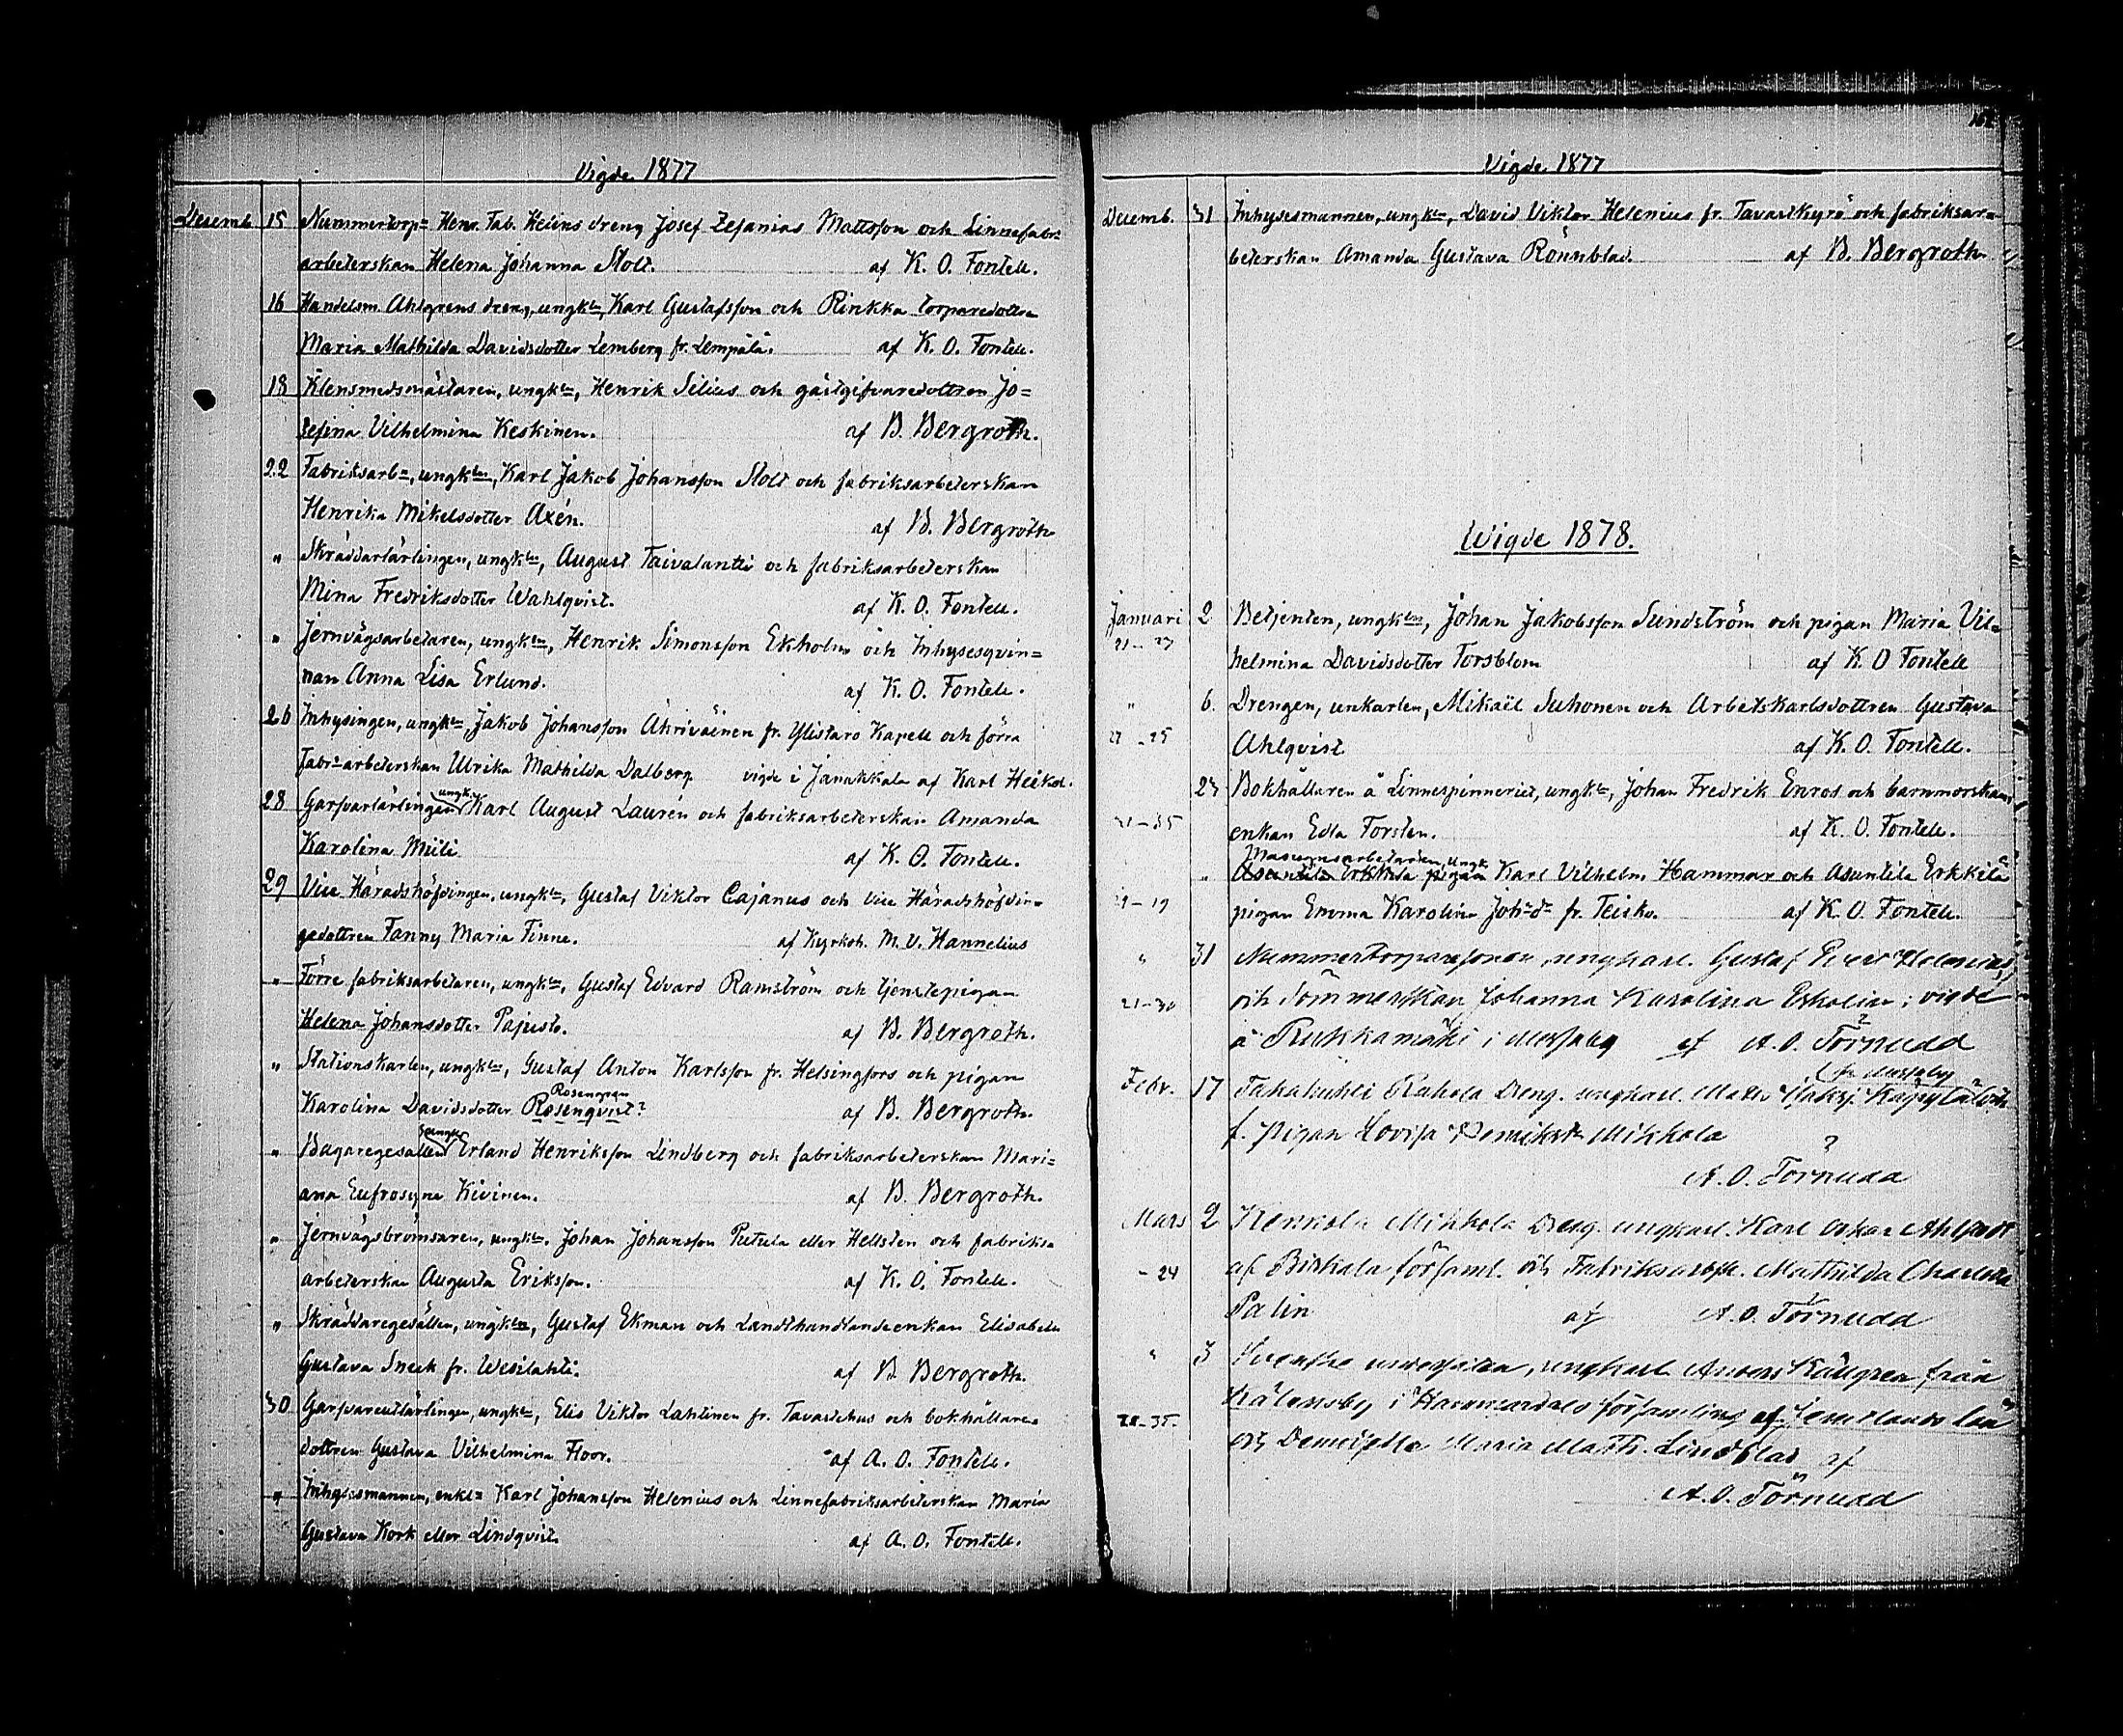 Vigde 1877
Decemb. 15 Nummertorp= Henr. Fab. Helins dreng Josef Zefanias Mattsson och Linnefabr=
arbeterskan Helena Johanna Stolt. af K. O. Fontell.
16 Handelsm. Ahlgrens dreng, ungkln, Karl Gustafsson och Rinkka torparedottern
Maria Mathilda Davidsdotter Lemberg fr. Lempälä. af K. O. Fontell.
18 Klensmedsmästaren, ungkln, Henrik Silius och gästgifvaredottren Jo=
sefina Vilhelmina Keskinen. af B. Bergroth.
22 Fabriksarb=, ungkln, Karl Jakob Johansson Stolt och fabriksarbeterskan
Henrika Mikelsdotter Axén. af B. Bergroth
" Skräddarlärlingen, ungkln, August Taivalantti och fabriksarbeterskan
Mina Fredriksdotter Wahlqvist. af K. O. Fontell.
" Jernvägsarbetaren, ungkln, Henrik Simonsson Ekholm och Inhysesqvin=
nan Anna Lisa Erlund. af K. O. Fontell.
26 Inhysingen, ungkln, Jakob Johansson Ahriväinen fr. Ylistaro Kapell och förra
Fabr=arbeterskan Ulrika Mathilda Dalberg vigde i Janakkala af Karl Heikel.
28 Garfvarlärlingen ungk. Karl August Laurén och fabriksarbeterskan Amanda
Karolina Miili af K. O. Fontell.
29 Vice Häradshöfdingen, ungkln, Gustaf Viktor Cajanus och Vice Häradshöfdin=
gedottren Fanny Maria Finne. af Kyrkoh. M. V. Hannelius
" Förre fabriksarbetaren, ungkln, Gustaf Edvard Ramström och tjenstepigan
Helena Johansdotter Pajusto. af B. Bergroth.
" Stationskarlen, ungkln, Gustaf Anton Karlsson fr. Helsingfors och pigan
Rosengren
Karolina Davidsdotter Rosenqvist? af B. Bergroth.
" Bagaregesällen ungk. Erland Henriksson Lindberg och fabriksarbeterskan Mari=
ana Eufrosyne Kivinen. af B. Bergroth.
" Jernvägsbromsaren, ungkln, Johan Johansson Putula eller Hellsten och fabriks=
arbeterskan Augusta Eriksson. af K. O. Fontell.
" Skräddaregesällen, ungkln, Gustaf Ekman och Landthandlandeenkan Elisabeth
Gustava Sneck fr. Wesilahti. af B Bergroth.
30 Garfvarelärlingen, ungkln, Elis Viktor Lahtinen fr. Tavastehus och bokhållare=
dottren Gustava Vilhelmina Floor. af A. O. Fontell.
" Inhysesmannen, enkl= Karl Johansson Helenius och Linnefabriksarbeterskan Maria
Gustava Kork eller Lindqvist. af A. O. Fontell.
Vigde 1877
Decemb. 31 Inhysesmannen, ungkln, David Viktor Helenius fr. Tavastkyrö och fabriksar=
beterskan Amanda Gustava Rönnblad. af B. Bergroth
Wigde 1878.
Januari 2 Betjenten, ungkln, Johan Jakobsson Sundström och pigan Maria Vil=
21-27 helmina Davidsdotter Forsblom af K O Fontell
" 6. Drengen, unkarlen, Mikaël Suhonen och Arbetskarlsdottren Gustava
22-25 Ahlqvist af K. O. Fontell.
27 Bokhållaren å Linnespinneriet, ungkln, Johan Fredrik Enros och barnmorskan,
31-35 enkan Edla Forstén. af K. O. Fontell.
Masugnsarbetaren, ungk.
" Asuntila Erkkilä pigan Karl Vilhelm Hammar och Asuntila Erkkilä
21-19 pigan Emma Karolina Joh=d= fr. Teisko. af K. O. Fontell.
" 31 Nummertorparesonen, ungkarl. Gustaf Evert Helenius,
21-30 och Sömmerskan Johanna Karolina Eskolin; vigde
å Rukkamäki i Messuby af A. O. Törnudd
fr Messuby
Febr. 17 Takahuhti Rahola Dreng. ungkarl. Matts Isaksj. Käpylä och
f. pigan Lovisa Henriksd. Mikkola
A. O. Törnudd
Mars 2 Kenkola Mikkola Dreng ungkarl. Karl Oskar Ahlqvist
-24 af Birkala församl. och Fabriksarbsk. Mathilda Charlotta
Palin af A. O. Törnudd
" 3 Svenske undersåten, ungkarl Anders Källgren från
Kälensby i Hammerdals församling af Jemtlands län
28-35. och Demoiselle Maria Math. Lindblad af
A. O. Törnudd